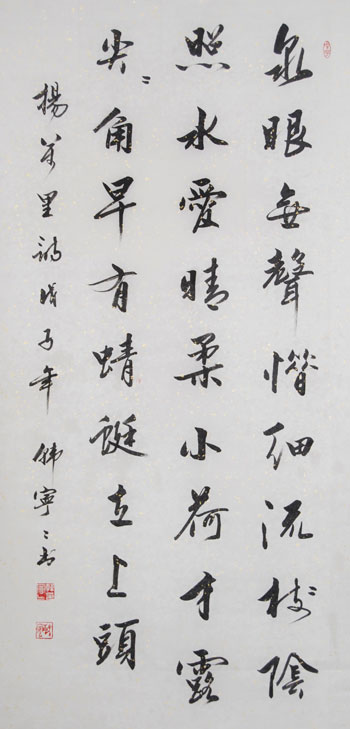 泉眼無聲惜細流樹陰
照水愛晴柔小荷才露
尖〻角早有蜻蜓立上頭
楊萬里詩 子年 韩寧〻书